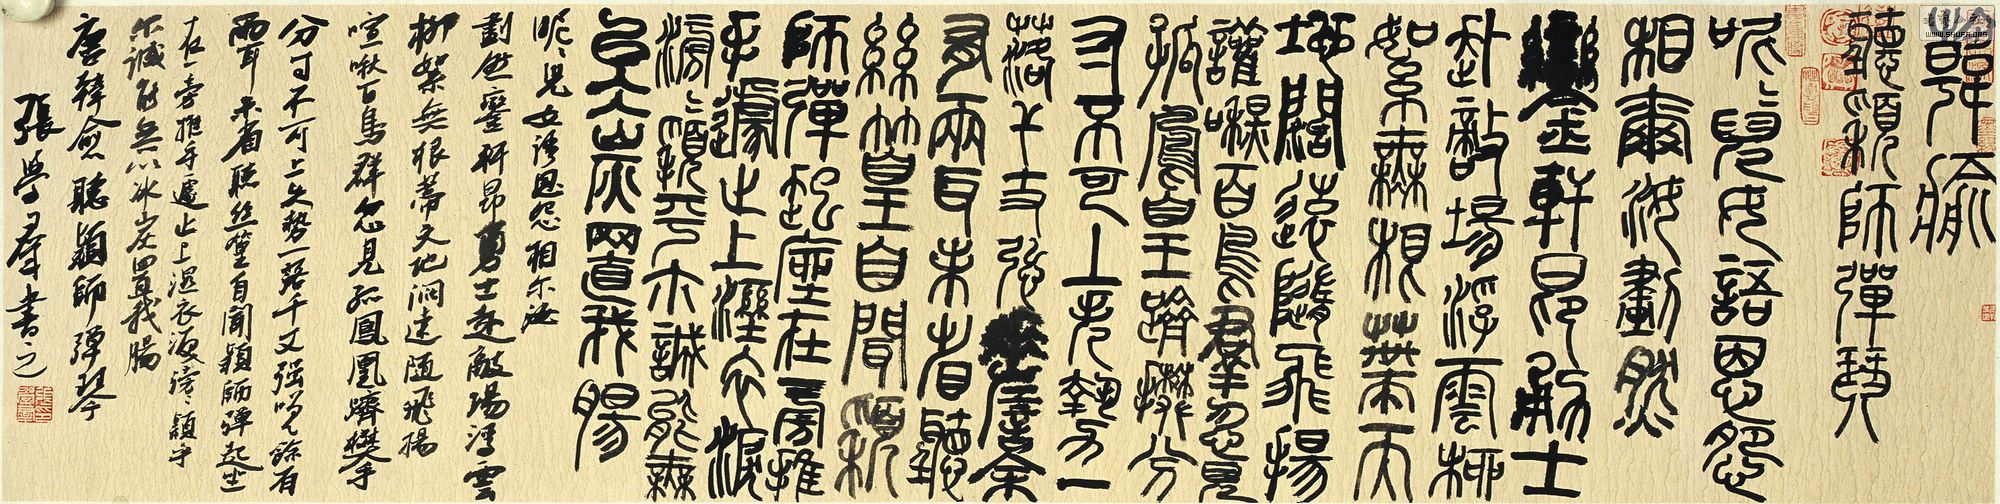 韓愈
聽穎師彈琴
昵〻兒女語恩怨
相爾汝劃然
變軒昂勇士
赴敵場浮雲柳
絮無根蒂天
地闊遠隨飛揚
喧啾百鳥群忽見
孤鳳皇躋攀分
寸不可上失勢一
落千丈強嗟余
有兩耳未省聽
絲篁自聞穎
師彈起坐在一旁推
手遽止上濕衣淚
滂〻穎乎爾誠能無
以冰炭置我腸
昵〻兒女語恩怨相爾汝
劃然變軒昂勇士赴敵場浮雲
柳絮無根蒂天地闊遠隨飛揚
喧啾百鳥群忽見孤鳳凰躋攀
分寸不可上失勢一落千丈強嗟余有
兩耳未省聽絲篁自聞穎師彈起坐
在一旁推手遽止上濕衣淚滂〻穎乎
爾誠能無以冰炭置我腸
唐韓愈聽穎師彈琴
張學群書之
WWW.SHUFA.ORG